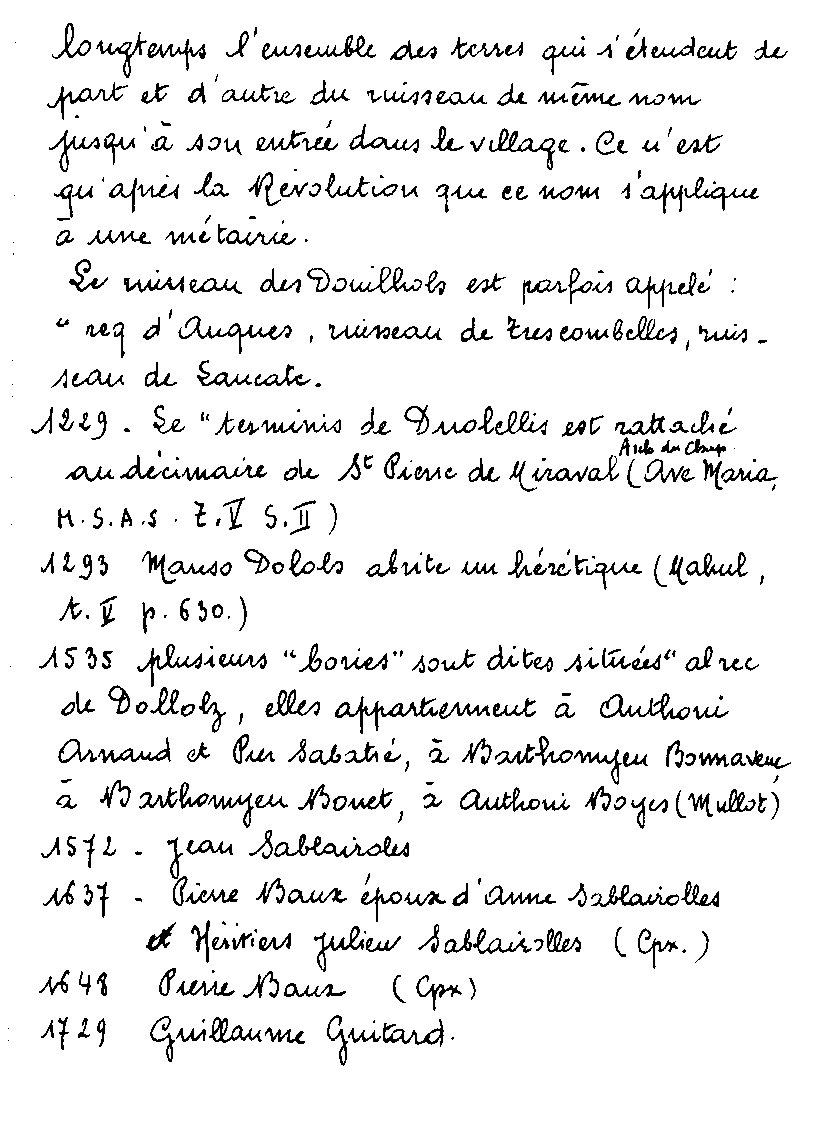 longtemps l'ensemble des terres qui s'étendent de
part et d'autre du ruisseau de même nom
jusqu'à son entrée dans le village. Ce n'est
qu'après la Révolution que ce nom s'applique
à une métairie.
Le ruisseau des Douilhols est parfois appelé :
" req d'Auques, ruisseau de trescombelles, ruis-
seau de Laucate.
1229 - Le "terminis de Duobellis est rattaché
Arch. du Chap.
au décimaire de St Pierre de Miraval (Ave Maria,
H.S.A.S. Z.V S.II)
1293 Manso Dolols abrite un hérétique (Mahul,
t. V p. 630.)
1535 plusieurs "bories" sont dites situées "al rec
de Dollolz, elles appartiennent à Anthoni
Arnaud et Pier Sabatié, à Barthomyeu Bonnavenc
à Barthomyeu Bonet, à Anthoni Boyes (Mullot)
1572 - Jean Sablairoles
1637 - Pierre Baux époux d'Anne Sablairolles
et Héritiers Julien Sablairolles (Cpx.)
1648 Pierre Baux (Cpx)
1729 Guillaume Guitard.